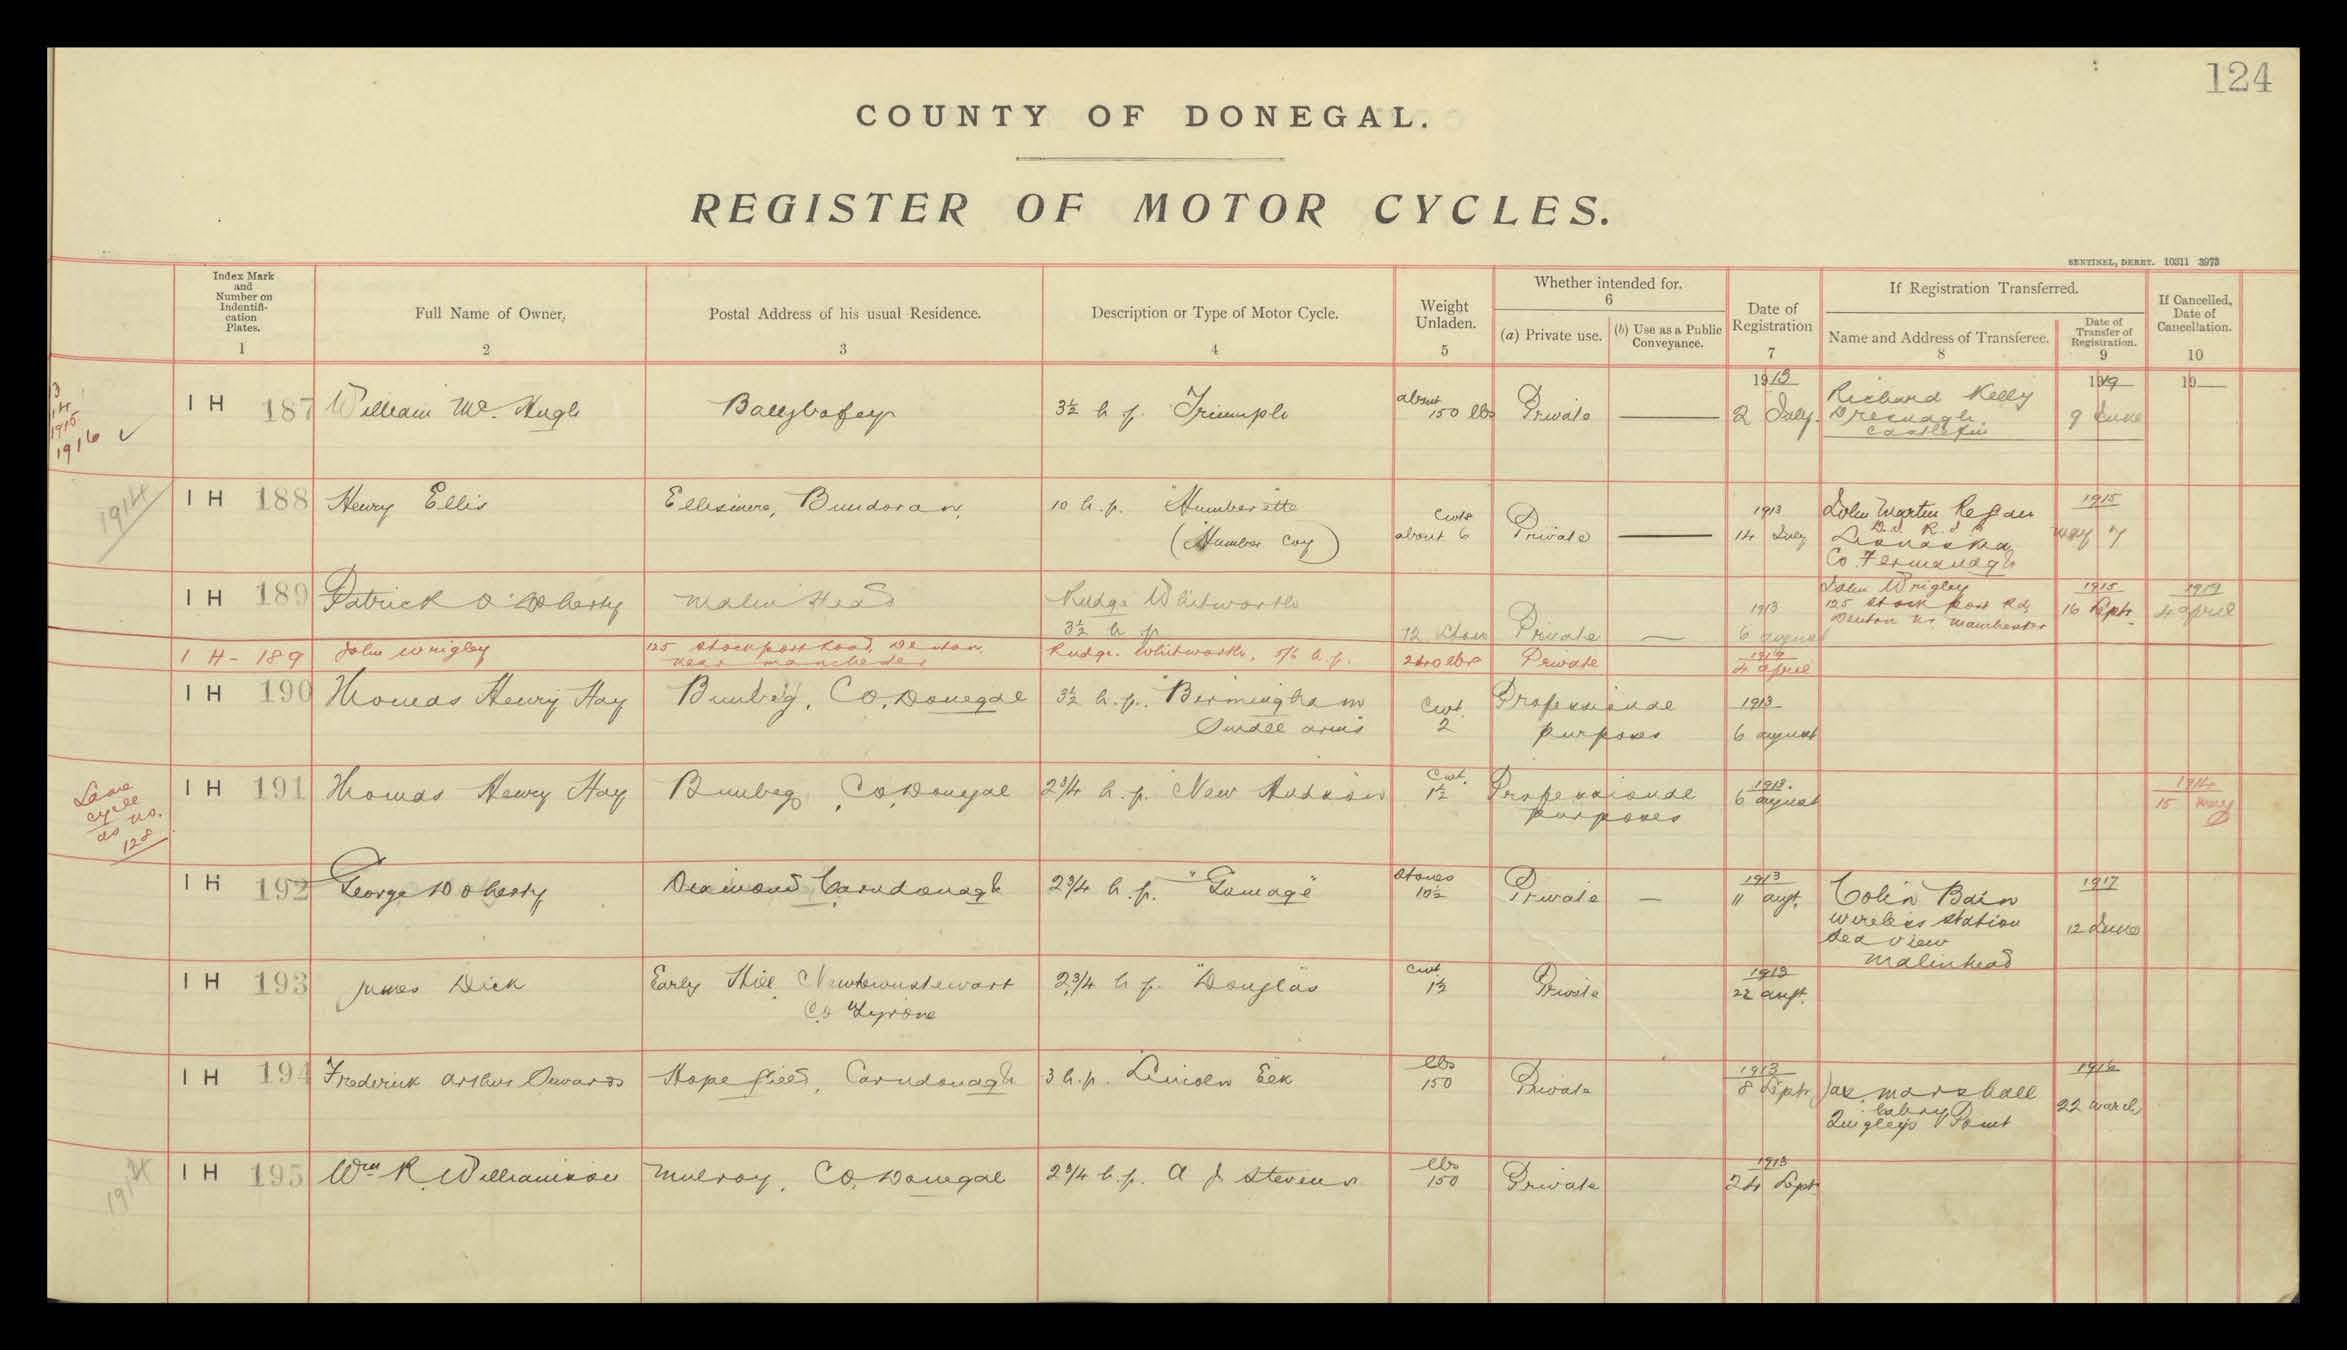 124
COUNTY OF DONEGAL.
REGISTER OF MOTOR CYCLES.
SENTINEL, DERRY. 10311 3973
Index Mark
and
Number on
Indentifi-
cation
Plates.
1
Full Name of Owner,
2
Postal Address of his usual Residence.
3
Description or Type of Motor Cycle.
4
Weight
Unladen.
5
Whether intended for.
6
(a) Private use.
(b) Use as a Public
Conveyance.
Date of
Registration
7
If Registration Transferred.
Name and Address of Transferee.
8
Date of
Transfer of
Registration.
9
If Cancelled,
Date of
Cancellation.
10
1915
1916 ✓
I H 187 William Mc. Hugh
Ballybofey
3½ h p. Triumph
about
150 lbs
Private
1913
2 July.
Richard Kelly
Castlefin
1919
9 June
19
1914
I H 188 Henry Ellis
Ellesmere, Bundoran,
10 h.p. "Humberette
(Humber Coy)
Cwts
about 6
Private
1913
14 July
John Martin Regan
D.I. R.I.C
Lisnaskea
Co. Fermanagh
1915
May 7
I H 189 Patrick O'Doherty
Malin Head
Rudge Whitworth
3½ h p
12 Stone
Private
1913
6 August
John Wrigley
125 Stock port Rd,
Denton Nr. Manchester
1915
16 Sept.
1919
4 April
I H - 189 John Wrigley
125 Stockport Road, Denton,
near Manchester
Rudge. Whitworth, 5/6 h.p.
240 lbs
Private
1919
4 April
I H 190 Thomas Henry Hay
Bunbeg, Co. Donegal
3½ h.p. "Birmingham
Small arms
Cwt.
2
Professional
purposes
1913
6 August
Same
cycle
as no.
128
I H 191 Thomas Henry Hay
Bunbeg, Co. Donegal
2¾ h.p. New Hudson
Cwt.
1½
Professional
purposes
1913.
6 August
1914
15 May
I H 192 George Doherty
Diamond Carndonagh
2¾ h.p. "Gamage"
Stones
10½
Private
1913
11 Augt.
Colin Bain
Wireless Station
Sea View
Malinhead
1917
12 June
I H 193 James Dick
Early Hill Newtownstewart
Co Tyrone
2¾ h p. "Douglas
Cwt.
1½
Private
1913
22 Augt.
I H 194 Frederick Arthur
Hope field, Carndonagh
3 h.p. Lincoln Elk
lbs
150
Private
1913
8 Sept.
Jas. Marshall
Quigley's Point
1916
22 March
1914
I H 195 Wm R. Williamson
Mulroy, Co. Donegal
2¾ h.p. A J Stevens
lbs
150
Private
1913
24 Sept